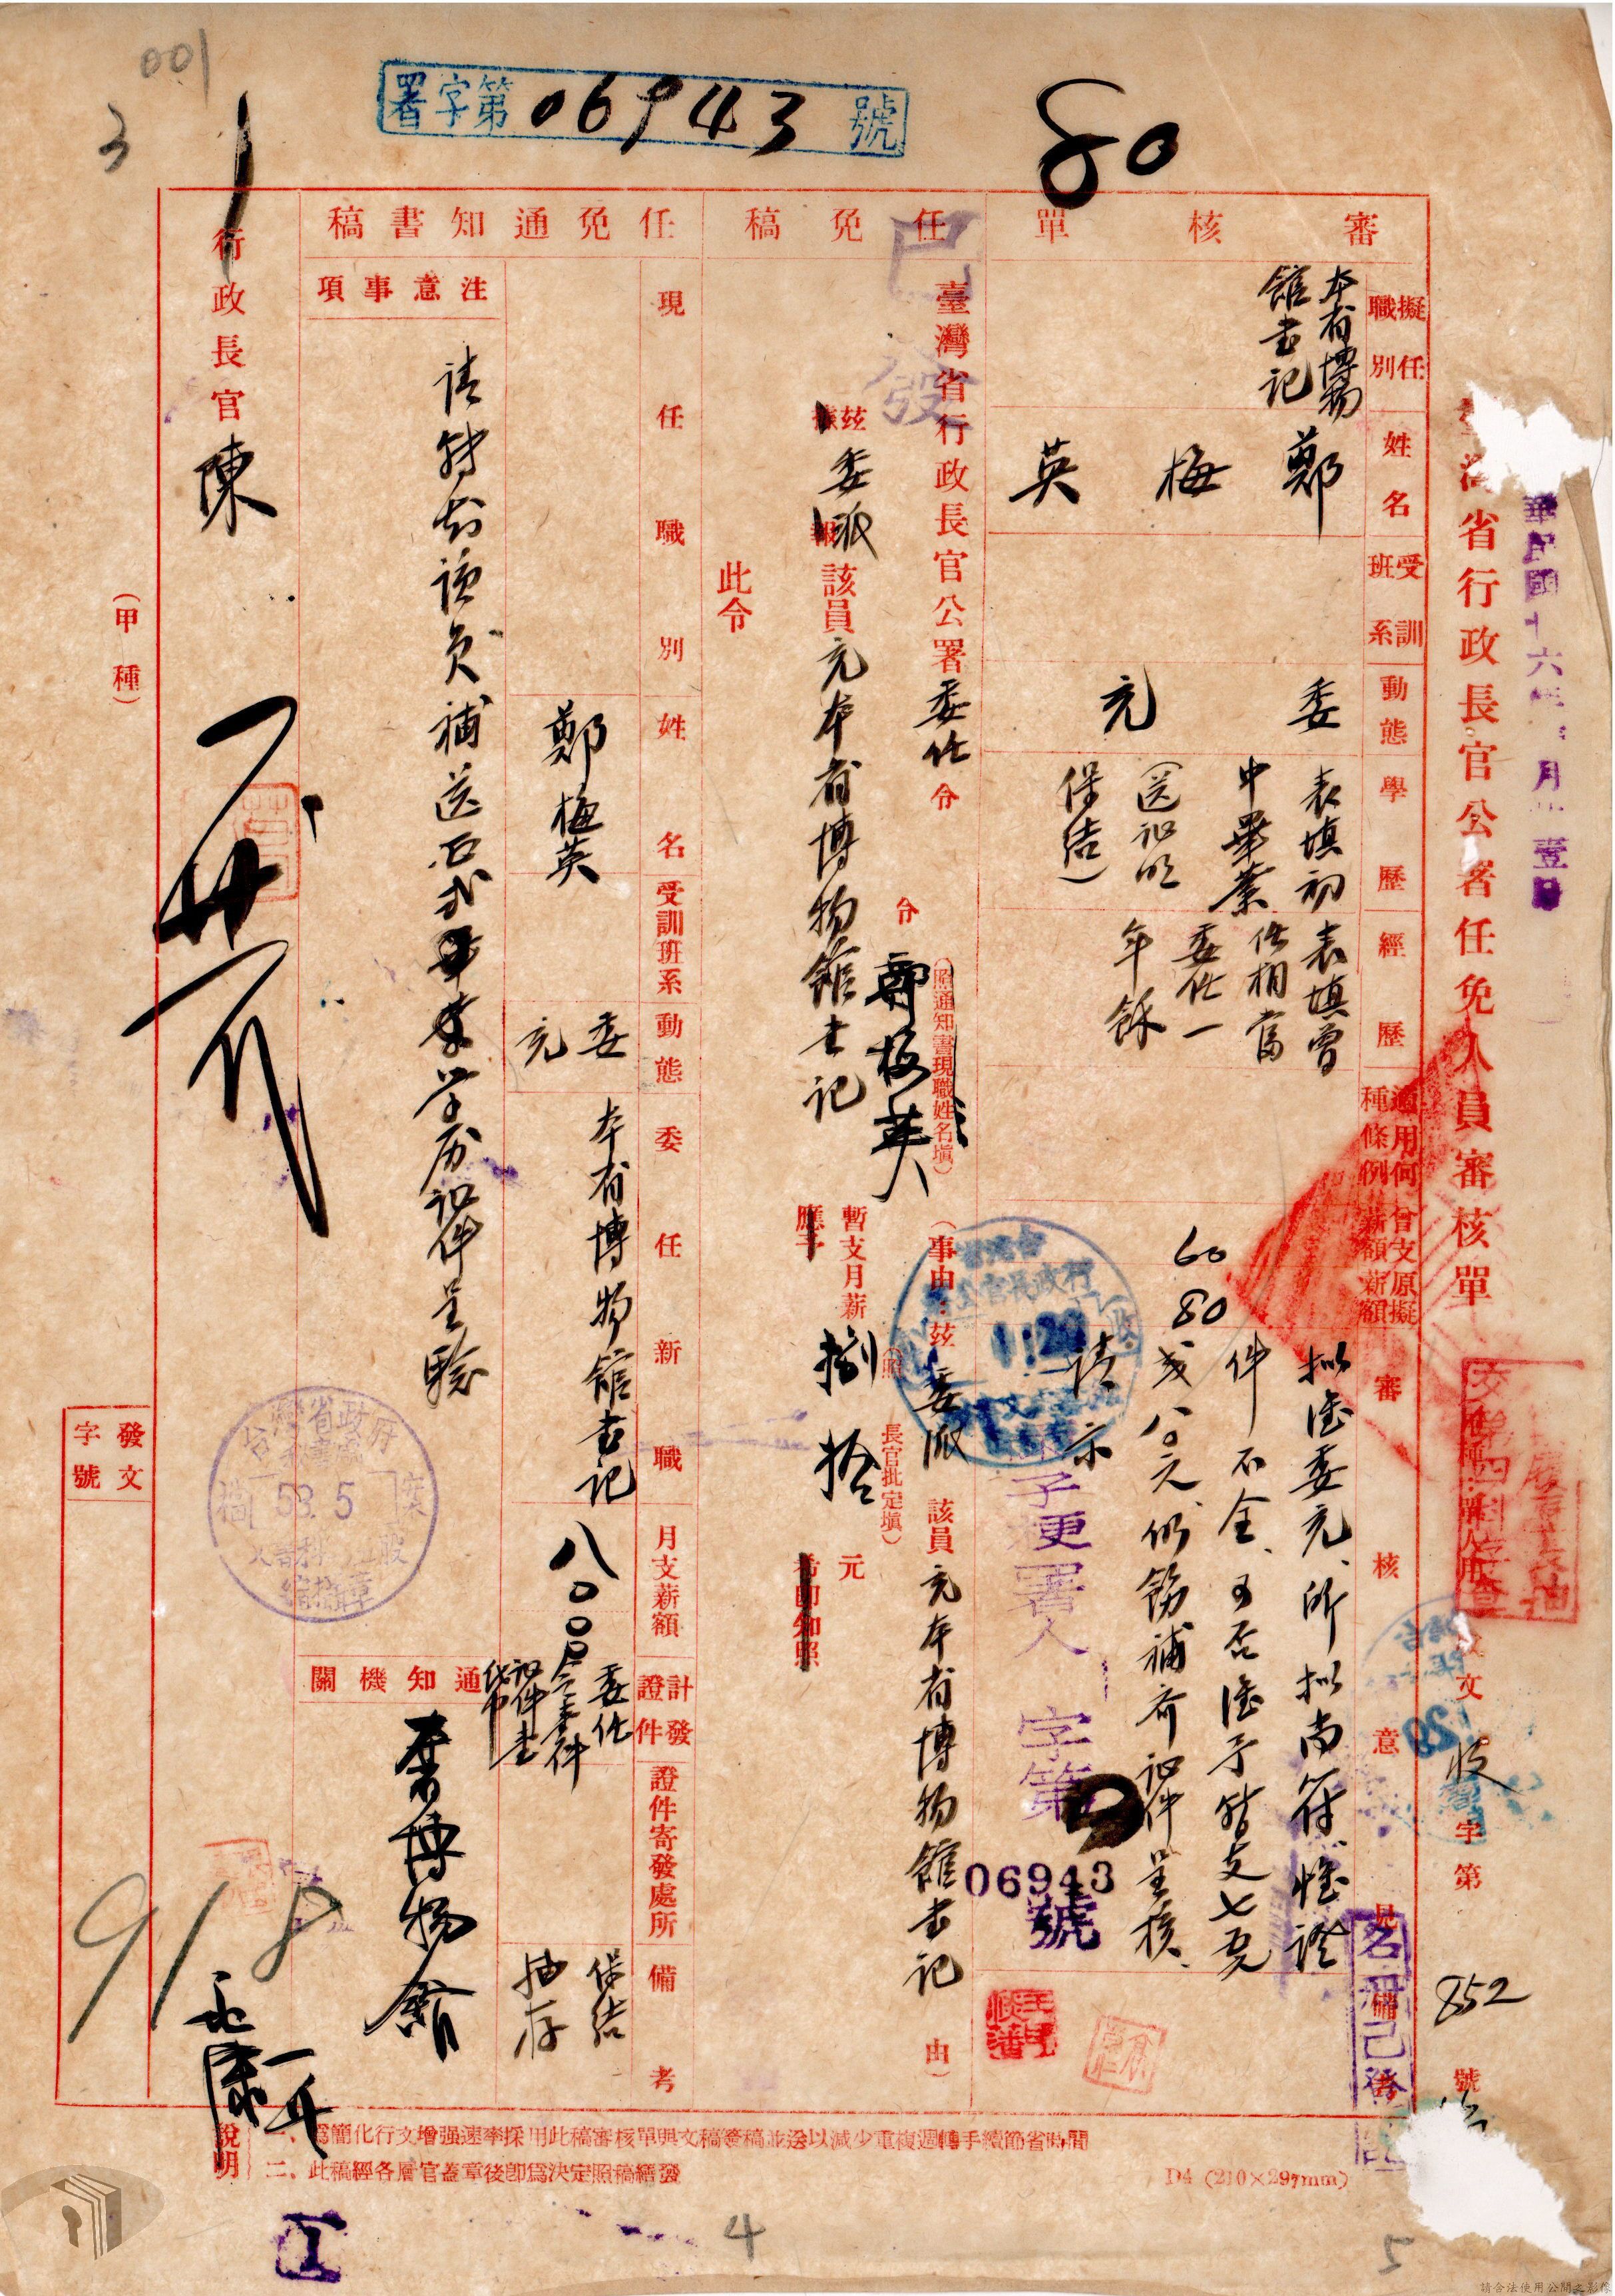 001
3
署字第06943號
80
灣省行政長官公署任免人員審核單
收文 收字第 852 號
審核單
擬任職別
本省博物館書記
姓名
鄭梅英
受訓班系
動態
委充
學歷
表填初中畢業(送証明保結)
經歷
表填曾任相當委任一年餘
適用何種條例
曾支薪額
60
原擬薪額
80
審核意見
擬准委充、所擬尚符、惟證件不全、可否准予暫支七五元或八〇元、仍飭補齊証件呈核、
請示
備考
06943
號
已發
任免稿
臺灣省行政長官公署委任令
令 鄭梅英
(照通知書現職姓名填)
(事由:茲委派該員充本省博物館書記由)
茲委派該員充本省博物館書記
暫支月薪捌拾元
(照長官批定填)
應予
希即知照
此令
任免通知書稿
現任職別
姓名
鄭梅英
受訓班系
動態
委充
委任新職
本省博物館書記
月支薪額
八〇.〇〇
計發證件
委任令壹件
証件壹
證件寄發處所
備考
保結抽存
注意事項
請轉知該員補送正式畢業學历証件呈驗
通知機關
本省博物館
行政長官 陳
(甲種)
發文字號
918
台灣省政府
53.5
檔案股
說明
一、爲簡化行文增强速率採用此稿審核單與文稿簽稿並送以減少重複週轉手續節省時間
二、此稿經各層官蓋章後卽爲決定照稿繕發
D4 (210×297mm)
I
4
5
請合法使用公開之影像